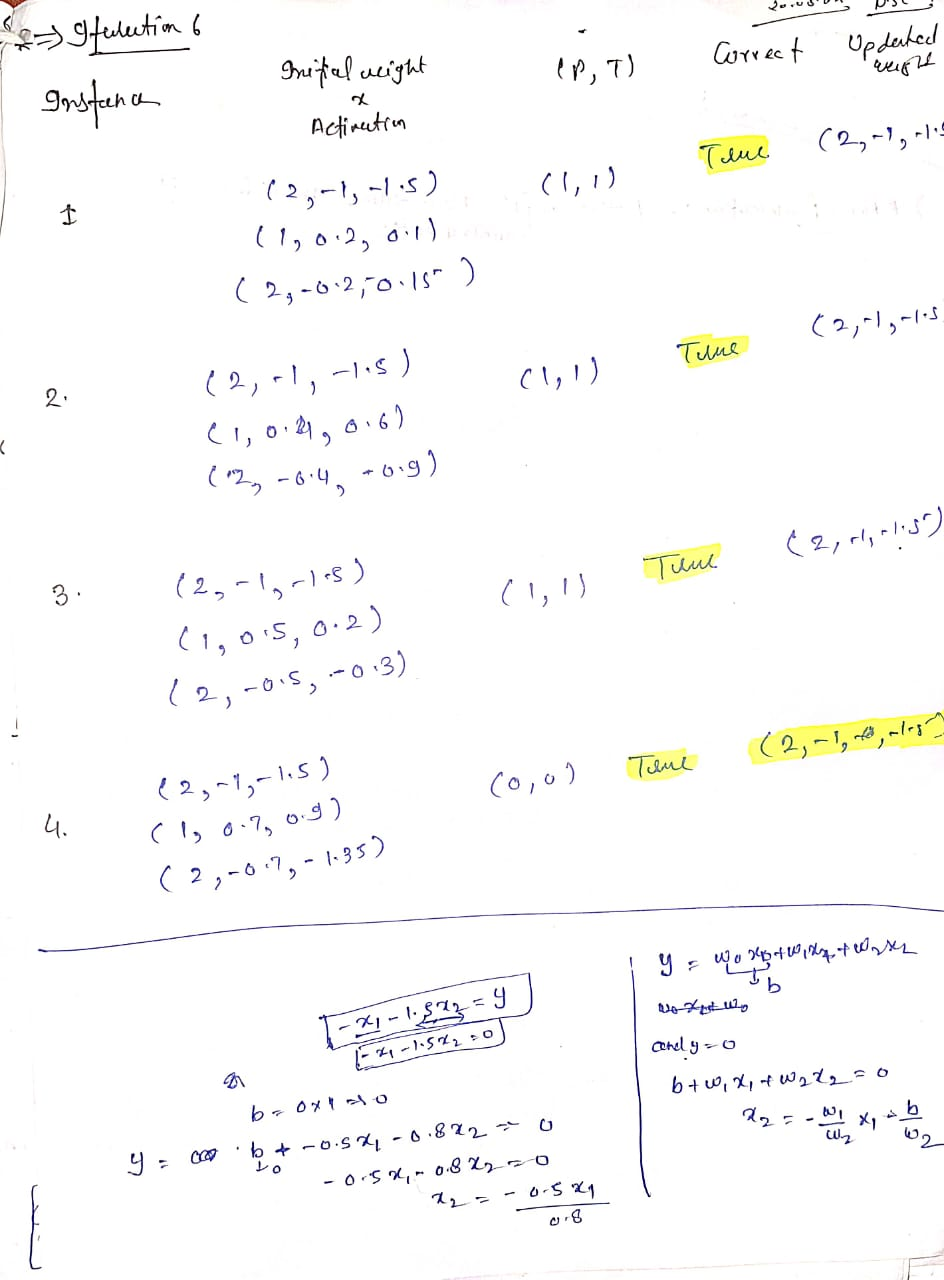 => Iteration 6
Instance
Initial weight
x
Activation
(P, T)
Correct
Updated
weight
1
(2, -1, -1.5)
(1, 0.2, 0.1)
(2, -0.2, -0.15)
(1, 1)
True
(2, -1, -1.5
2.
(2, -1, -1.5)
(1, 0.4, 0.6)
(2, -0.4, -0.9)
(1, 1)
True
(2, -1, -1.5
3.
(2, -1, -1.5)
(1, 0.5, 0.2)
(2, -0.5, -0.3)
(1, 1)
True
(2, -1, -1.5)
4.
(2, -1, -1.5)
(1, 0.7, 0.9)
(2, -0.7, -1.35)
(0, 0)
True
(2, -1, -1.5)
-x1 - 1.5x2 = y
-x1 - 1.5x2 = 0
b = 0x1 = 0
y = b + -0.5x1 - 0.8x2 = 0
-0.5x1 - 0.8x2 = 0
x2 = -0.5x1
0.8
y = w0x0 + w1x1 + w2x2
b
and y = 0
b + w1x1 + w2x2 = 0
x2 = - w1/w2 x1 - b/w2